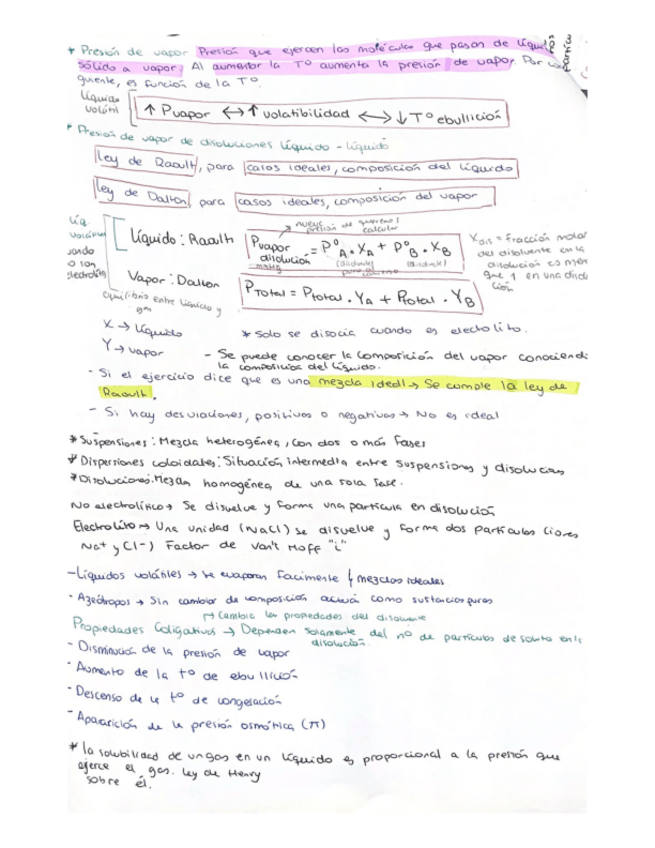 * Presión de vapor Presión que ejercen las moléculas que pasan de líqui
sólido a vapor. Al aumentar la Tº aumenta la presión de vapor. Por
guiente, es función de la Tº.
líquido
volátil
↑ Pvapor ↔ ↑ volatibilidad ↔ ↓ Tº ebullición
* Presión de vapor de disoluciones líquido - líquido
ley de Raoult, para casos ideales, composición del líquido
ley de Dalton, para casos ideales, composición del vapor
líq.
Líquido: Raoult
Pvapor disolución = PºA · XA + PºB · XB
Xdis = fracción molar
del disolvente en la
disolución es men
que 1 en una diso
ción
Vapor: Dalton
PTotal = Ptotal · YA + Ptotal · YB
equilibrio entre líquido y
X → líquido
* Solo se disocia cuando es electolito.
Y → vapor
- Se puede conocer la composición del vapor conociend
la composición del líquido.
- Si el ejercicio dice que es una mezcla ideal → Se cumple la ley de
Raoult.
- Si hay desviaciones, positivas o negativas → No es ideal
* Suspensiones: Mezcla heterogénea, con dos o más fases
* Dispersiones coloidales: Situación intermedia entre suspensiones y disoluciones
* Disoluciones: Mezcla homogénea de una sola fase.
No electrolítico → Se disuelve y forma una partícula en disolución
Electrolito → Una unidad (NaCl) se disuelve y forma dos partículas (iones
Na+ y Cl-) Factor de Van't Hoff "i"
- Líquidos volátiles → se evaporan facimente y mezclas ideales
- Azeótropos → Sin cambiar de composición actúa como sustancias puras
↦ Cambia las propiedades del disolvente
Propiedades Coligativas → Dependen solamente del nº de partículas de soluto en la
disolución.
- Disminución de la presión de vapor
- Aumento de la tº de ebullición
- Descenso de la tº de congelación
- Aparición de la presión osmótica (π)
* la solubilidad de un gas en un líquido es proporcional a la presión que
ejerce el gas. ley de Henry
sobre él.